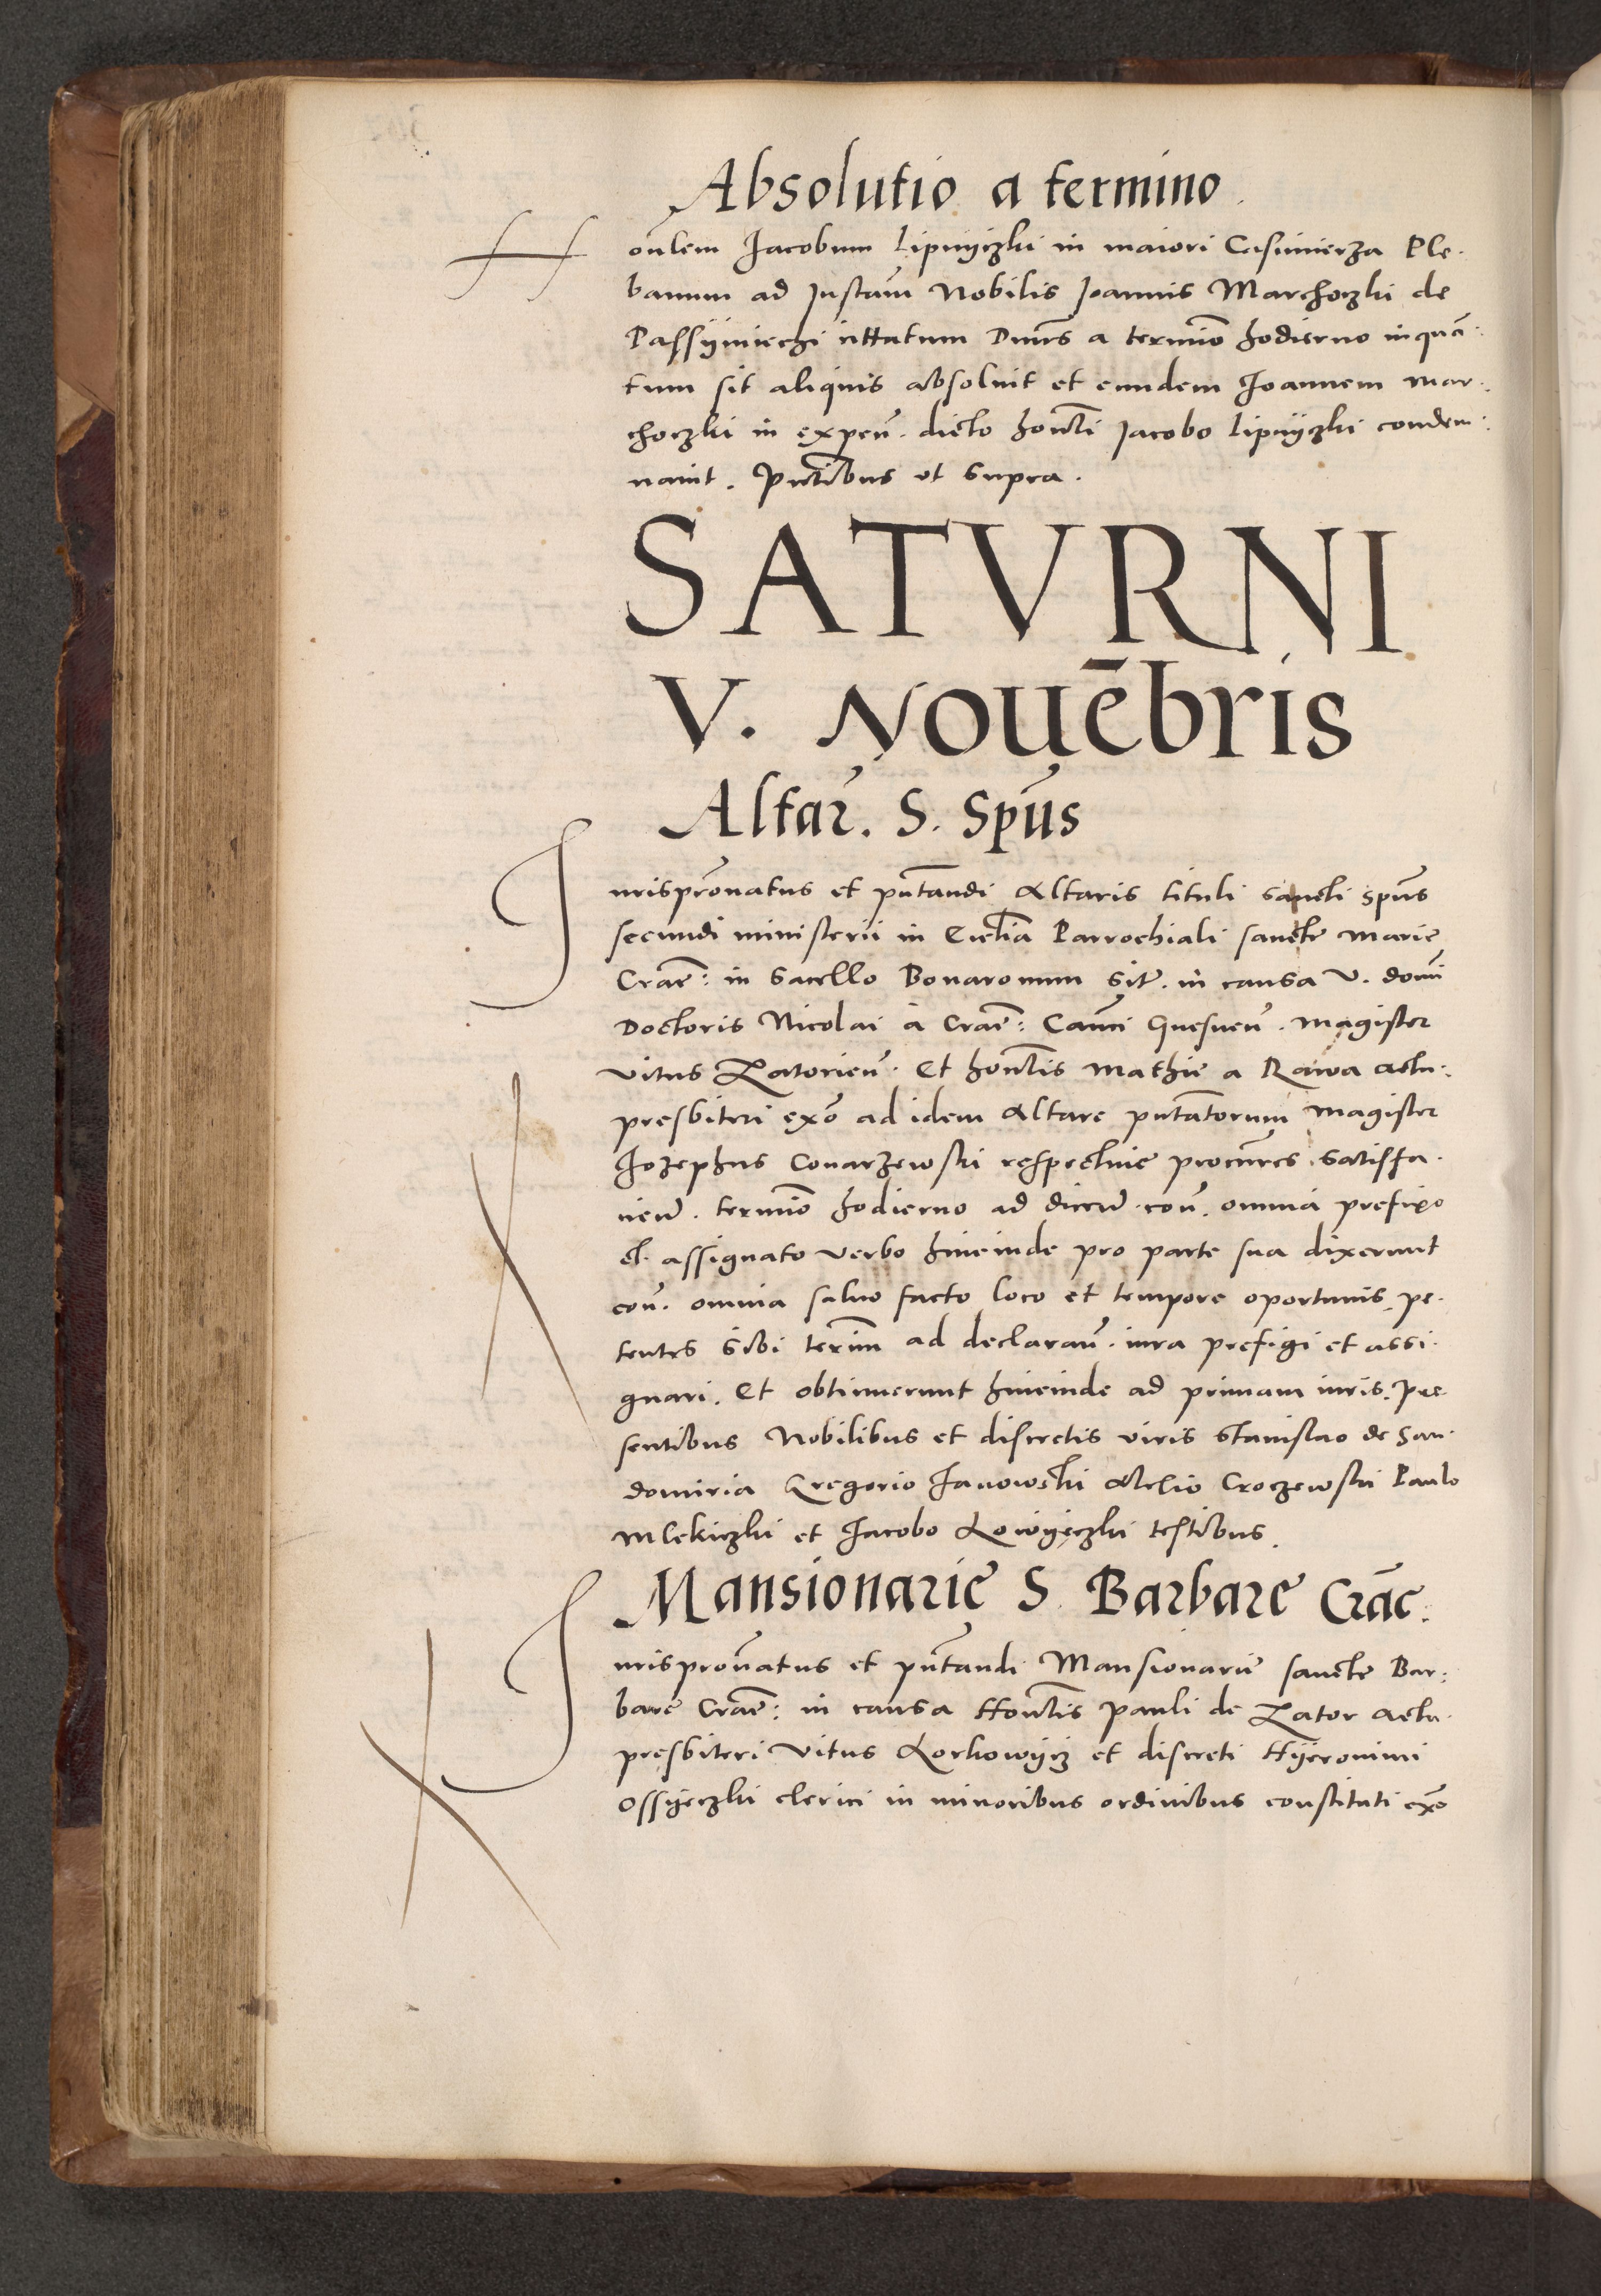 Absolutio a termino
Honlem Jacobum Lipnyczki in maiori Casimierza Ple-
banum ad Instam Nobilis Joannis Marchoczki de
Passyiniechi cittatum Dnus a termio hodierno inquã-
tum sit aliquis absoluit et eundem Joannem Mar-
choczki in expen. dicto honli Jacobo Lipnyczki condem-
nauit. Pntibus vt supra.
SATVRNI
V. Nouēbris
Altar. S. Spus
Jurispronatus et pntandi Altaris tituli sancti spus
secundi ministerii in Ecclia Parrochiali sancte Marie
Crac: in Sacello Bonaronum sit. in causa V. domi
Doctoris Nicolai a Crac: Canci Gnesnen. Magister
Vitus Zatorien. Et honlis Mathie a Rawa actu:
presbiteri exo ad idem Altare pntatorum Magister
Jozephus Conarzewski respectiue procures satisffa-
cien. termio hodierno ad dicen. con. omnia prefixo
et assignato verbo hincinde pro parte sua dixerunt
con. omnia saluo facto loco et tempore oportunis pe-
tentes sibi termi ad declaran. iura prefigi et assi-
gnari. Et obtinuerunt hincinde ad primam iuris. Pre-
sentibus Nobilibus et discretis viris Stanislao de San-
domiria Gregorio Janowski Melio Croczewski Paulo
Mlekiczki et Jacobo Lowyeczki testibus.
Mansionarie S. Barbare Crac.
Jurispronatus et pntandi Mansionarie sancte Bar:
bare Crac: in causa Honlis Pauli de Zator actu-
presbiteri Vitus Lorkowyicz et discreti Hyeronimi
Ossyeczki clerici in minoribus ordinibus constituti exo